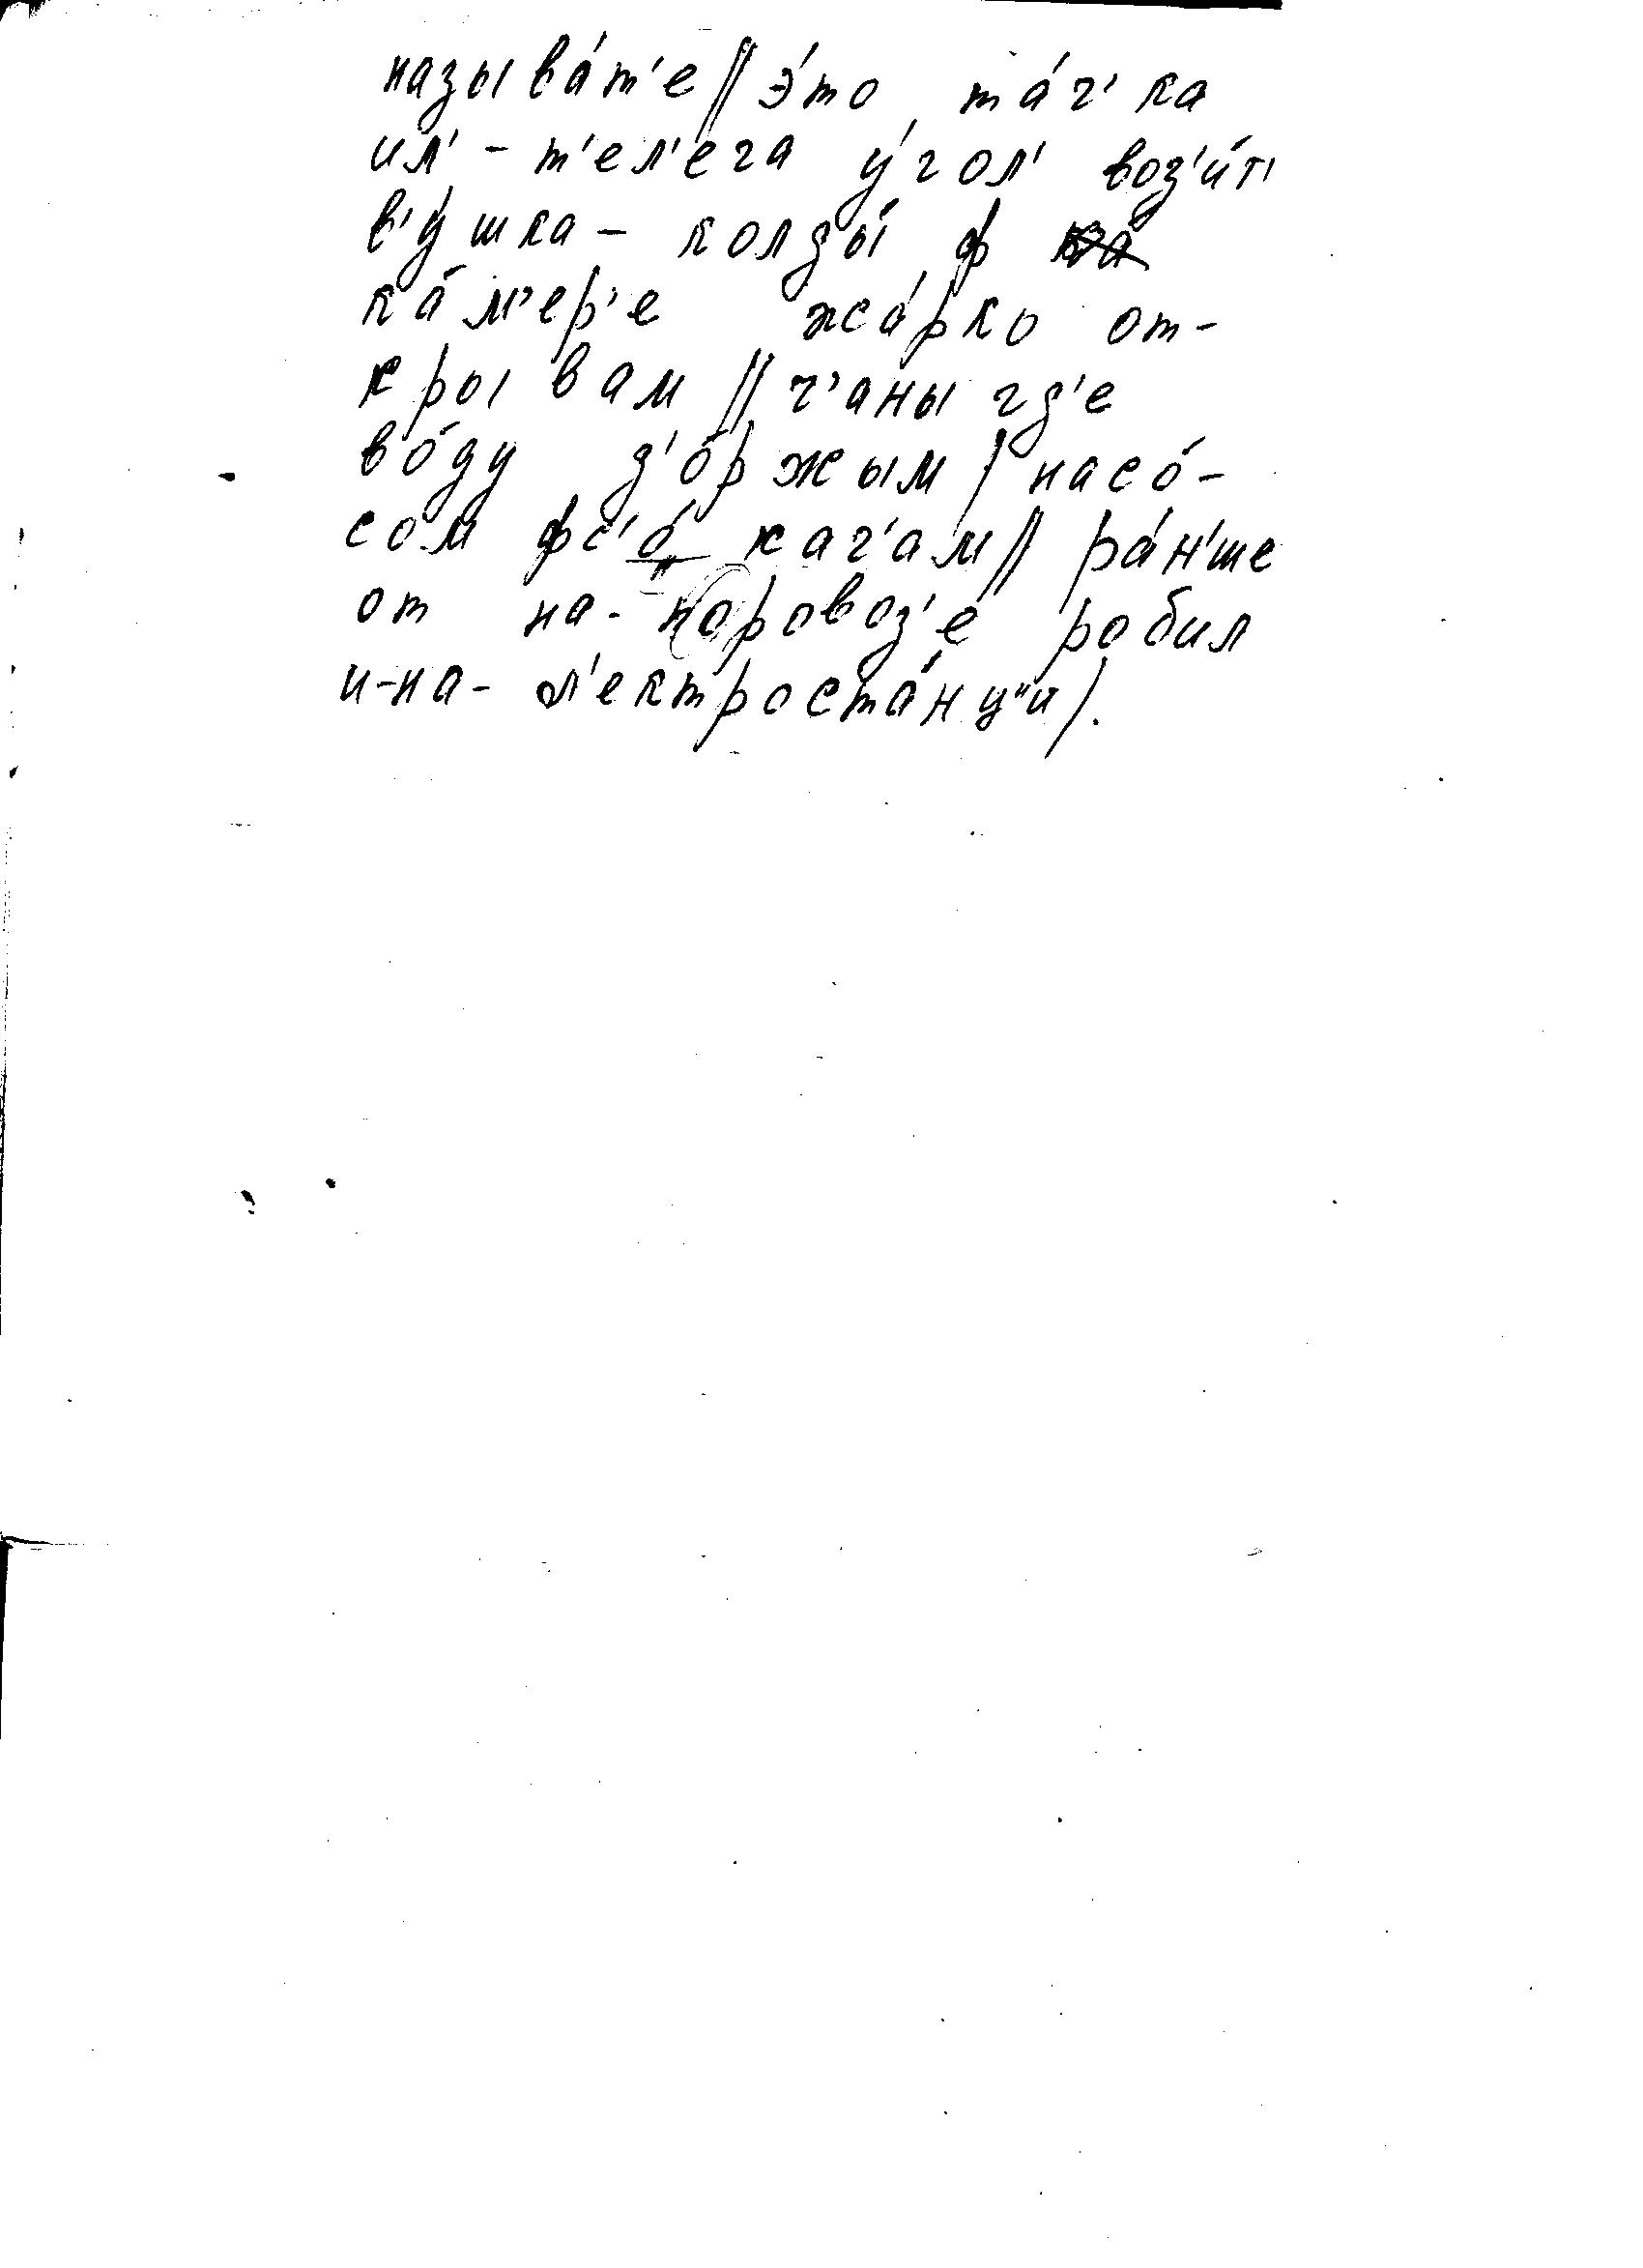 называ́т'е // э́то та́ч'ка
ил' - т'ел'ега у́гол' воз'и́т'
в'у́шка - колды́ ф
ка́м'ер'е жа́рко от-
крывам // ч'аны гд'е
во́ду д'о́ржым / насо́-
сом фс'о́ кач'ам // ра́н'ше
от на- поровоз'е робил
и-на- л'ектроста́нц"и /.